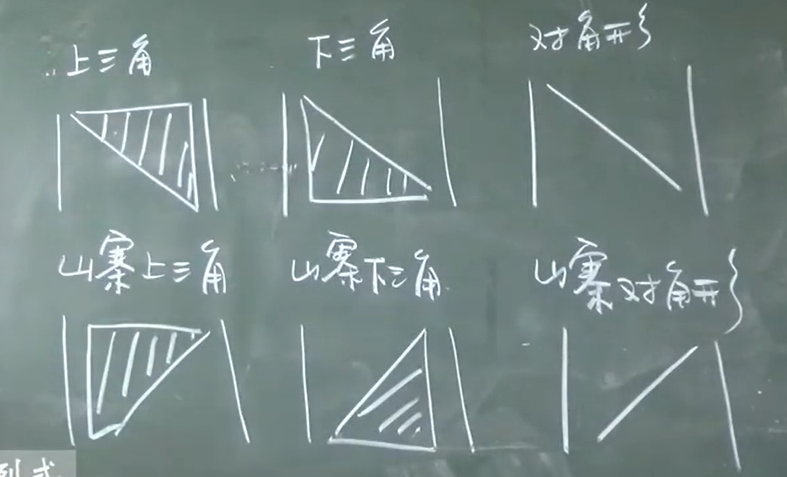 上三角
下三角
对角形
山寨上三角
山寨下三角
山寨对角形
列式